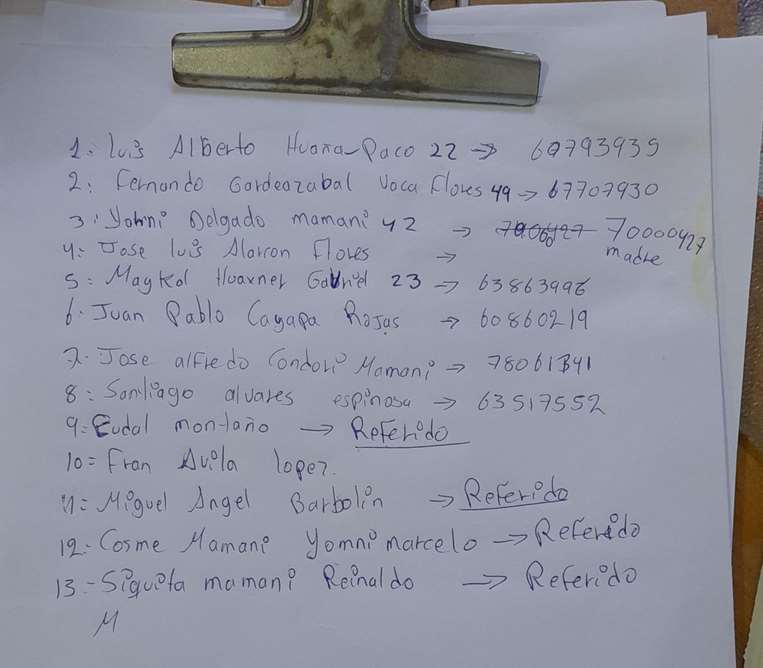 1. Luis Alberto Huana Paco 22 → 60793939
2: Fernando Gordeazabal Vaca Flores 49 → 67707930
3: Yohni Delgado mamani 42 → 70000427
madre
4: Jose luis Alarcon Flores →
5: Maykol Huaxner Gabriel 23 → 63863996
6. Juan Pablo Cayapa Rojas → 60860219
7. Jose alfredo Condori Mamani → 78061341
8: Santiago alvares espinosa → 63517552
9: Eudal montaño → Referido
10= Fran Avila lopez.
11= Miguel Angel Barbolin → Referido
12- Cosme Mamani Yomni marcelo → Referido
13.- Siquita mamani Reinaldo → Referido
M